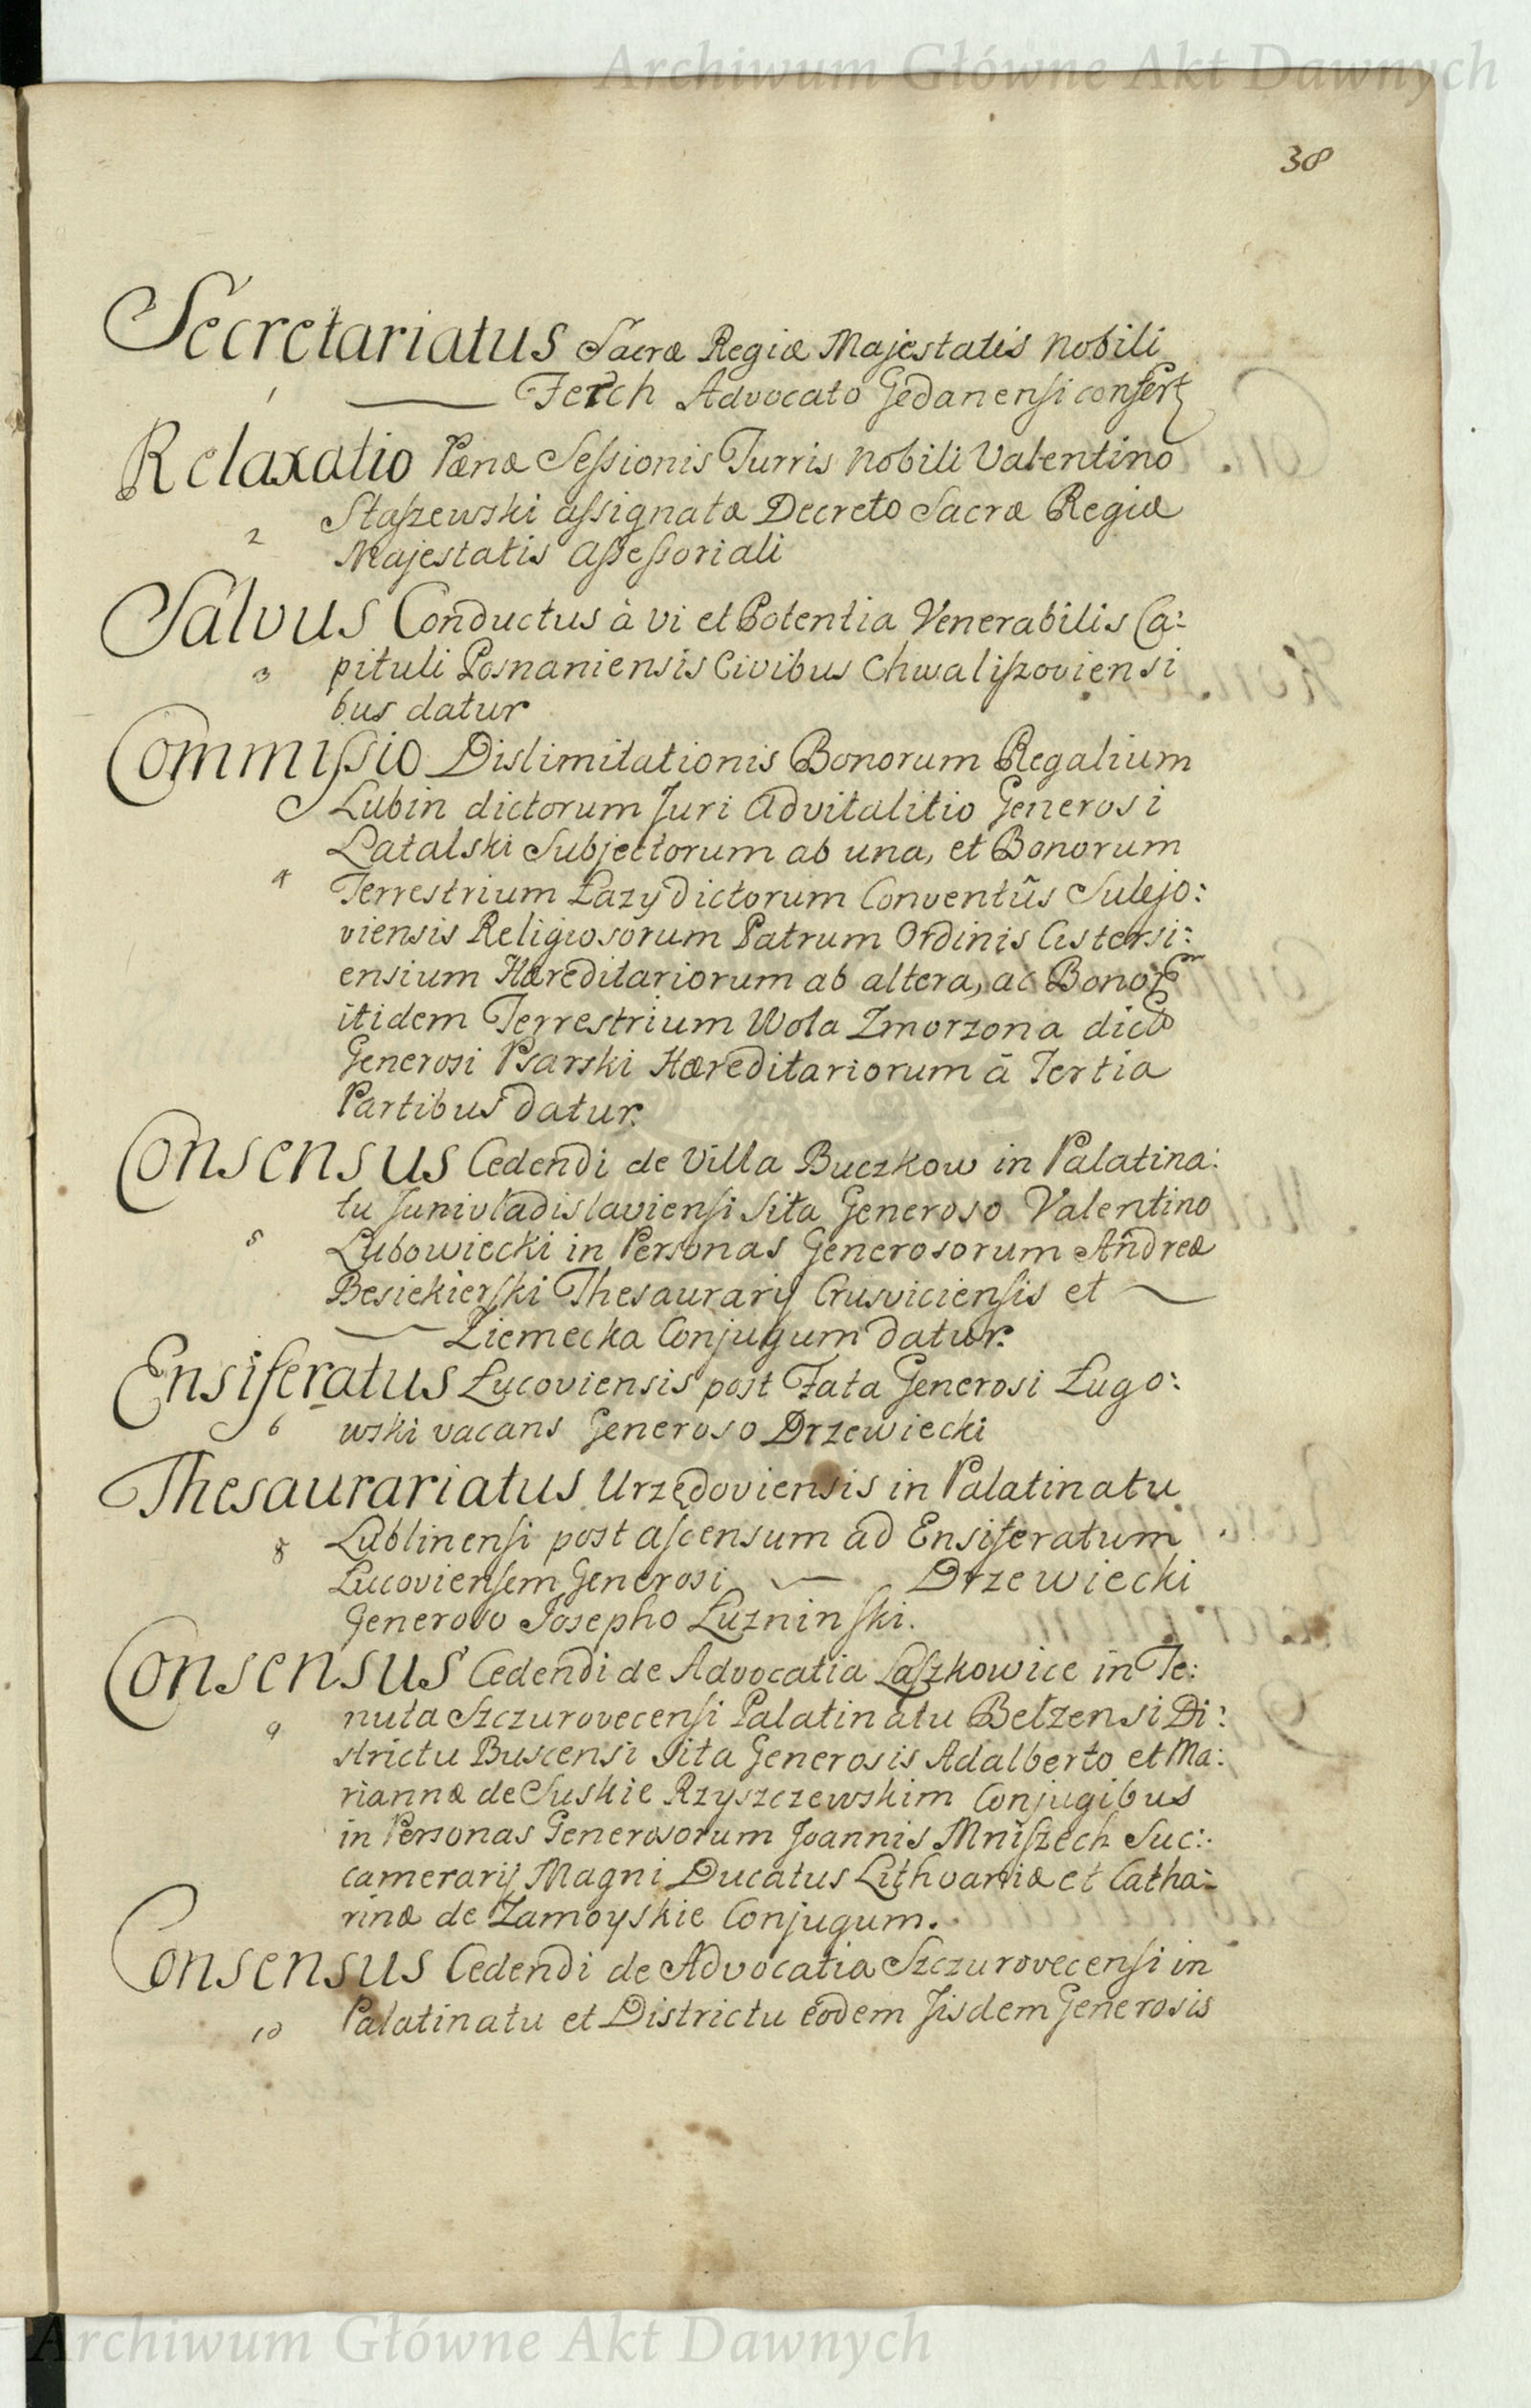 Archiwum Główne Akt Dawnych
38
Secretariatus Sacræ Regiæ Majestatis Nobili
1 Ferch Advocato Gedanensi confert
Relaxatio Pænæ Seſsionis Turris Nobili Valentino
2 Staſzewski aſsignatæ Decreto Sacræ Regiæ
Majestatis Aſseſsoriali
Salvus Conductus à vi et Potentia Venerabilis Ca:
3 pituli Posnaniensis Civibus Chwaliſzoviensi
bus datur
Commiſsio Dislimitationis Bonorum Regalium
Lubin dictorum Juri Advitalitio Generosi
Latalski Subjectorum ab una, et Bonorum
4 Terrestrium Łazy dictorum Conventûs Sulejo:
viensis Religiosorum Patrum Ordinis Cistersi:
ensium Hæreditariorum ab altera, ac Bonor
itidem Terrestrium Wola Zmorzona dict
Generosi Psarski Hæreditariorum â Tertia
Partibus datur.
Consensus Cedendi de Villa Buczkow in Palatina:
tu Junivladislaviensi Sita Generoso Valentino
5 Lubowiecki in Personas Generosorum Andreæ
Besiekierſki Thesaurarij Crusviciensis et
Ziemecka Conjugum datur.
Ensiferatus Lucoviensis post Fata Generosi Ługo:
6 wski vacans Generoso Drzewiecki
Thesaurariatus Urzędoviensis in Palatinatu
8 Lublinensi post aſcensum ad Ensiferatum
Lucoviensem Generosi Drzewiecki
Generoso Josepho Łuzninſki.
Consensus Cedendi de Advocatia Laſzkowice in Te:
9 nuta Szczurovecensi Palatinatu Bełzensi Di:
strictu Buscensi Sita Generosis Adalberto et Ma:
riannæ de Suskie Rzyszczewskim Conjugibus
in Personas Generosorum Joannis Mniſzech Suc:
camerarij Magni Ducatus Lithvaniæ et Catha:
rinæ de Zamoyskie Conjugum.
Consensus Cedendi de Advocatia Szczurovecensi in
10 Palatinatu et Districtu eodem Jisdem Generosis
Archiwum Główne Akt Dawnych